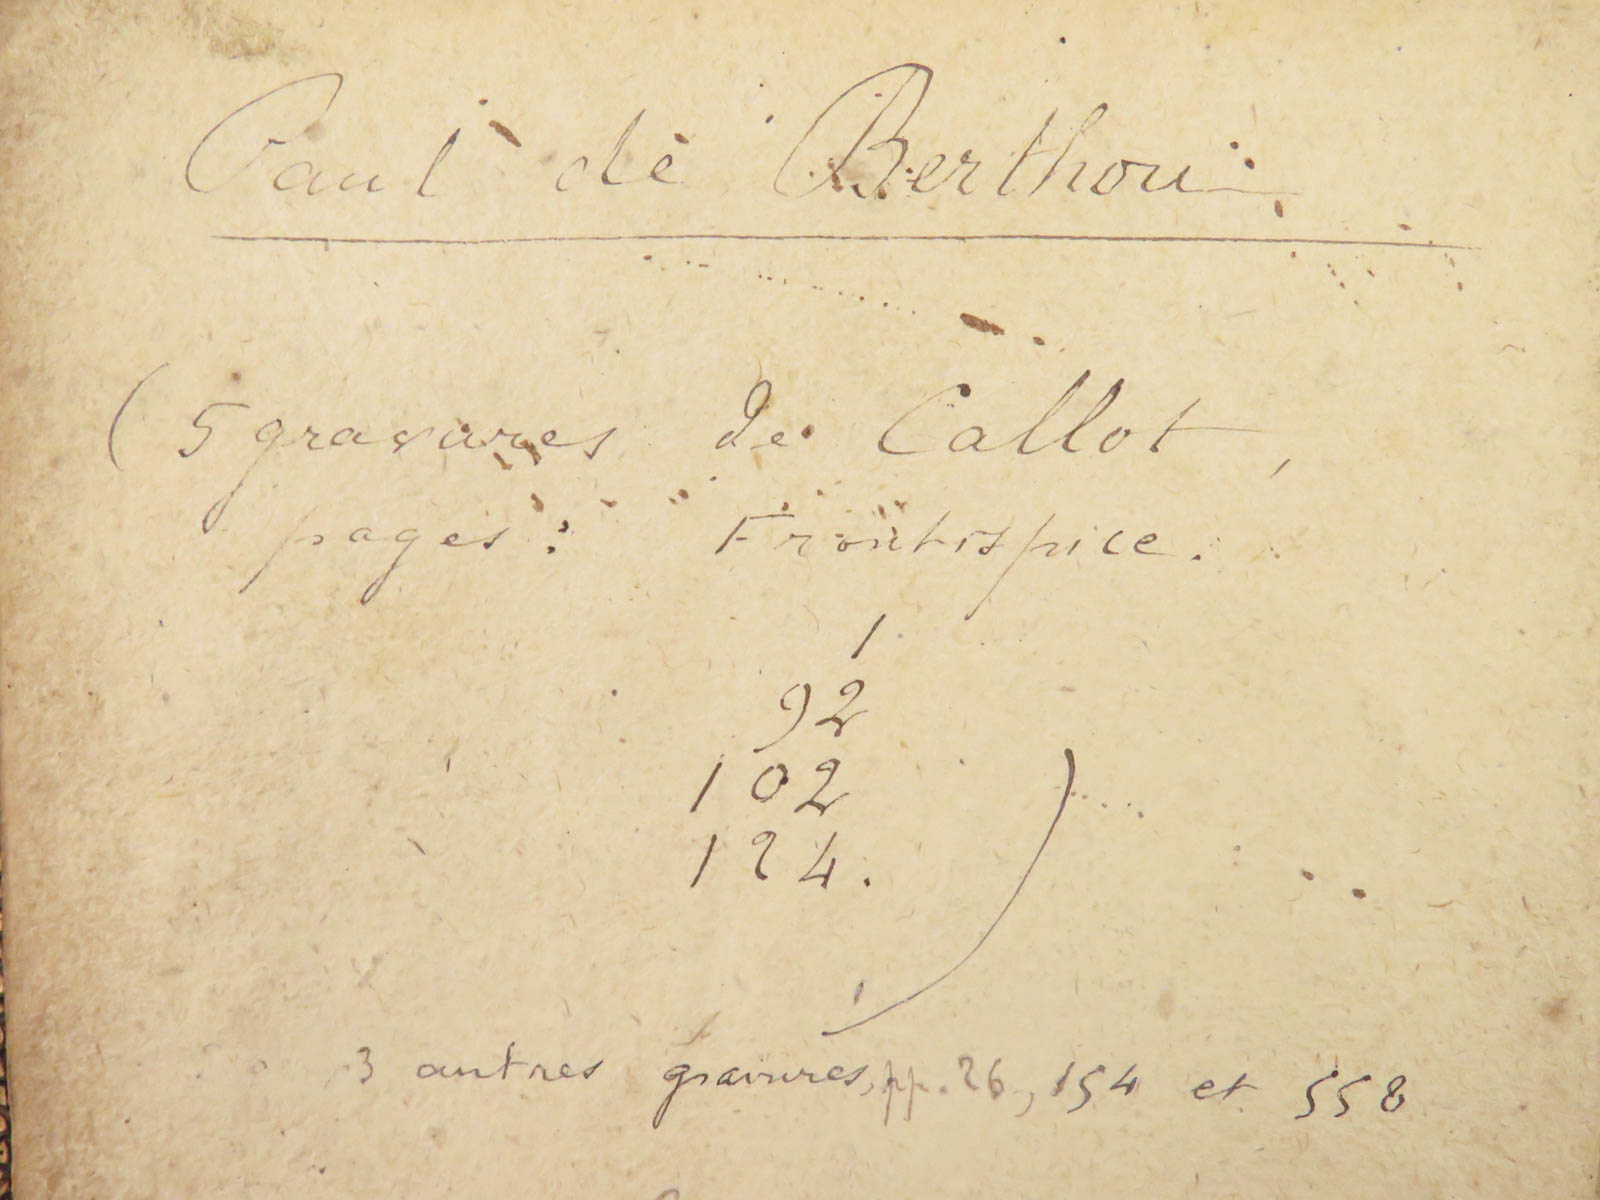 Paul de Berthou
(5 gravures de Callot,
pages: Frontispice.
1
92
102
124.
)
3 autres gravures, pp. 26, 154 et 558